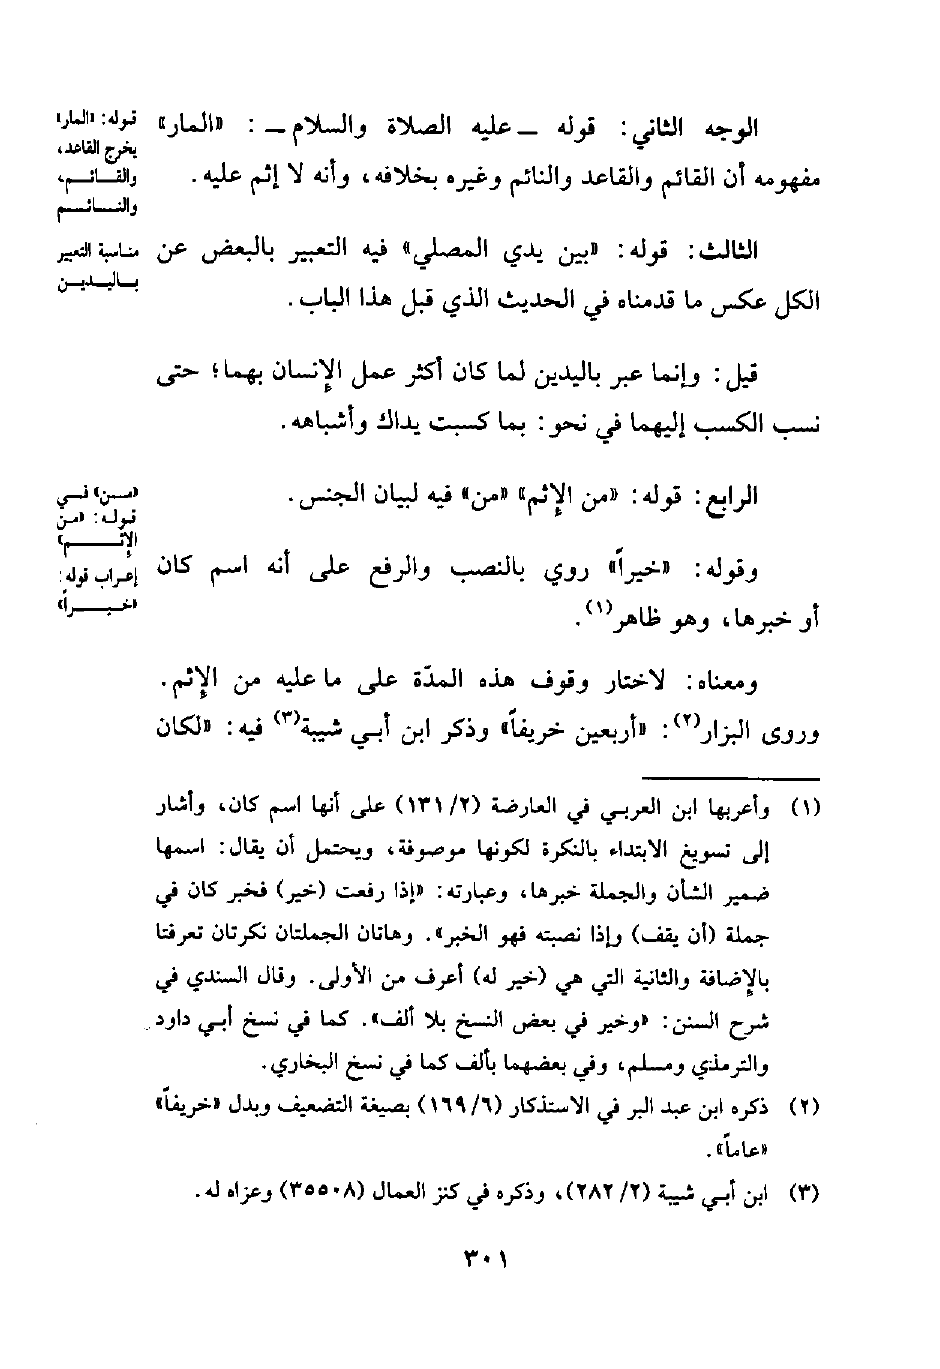 الوجه الثاني: قوله ـ عليه الصلاة والسلام ـ: «المار»
مفهومه أن القائم والقاعد والنائم وغيره بخلافه، وأنه لا إثم عليه.
قوله: «المار»
يخرج القاعد،
والقـائـم،
والنـائـم
الثالث: قوله: «بين يدي المصلي» فيه التعبير بالبعض عن
الكل عكس ما قدمناه في الحديث الذي قبل هذا الباب.
مناسبة التعبير
بـاليـديـن
قيل: وإنما عبر باليدين لما كان أكثر عمل الإنسان بهما؛ حتى
نسب الكسب إليهما في نحو: بما كسبت يداك وأشباهه.
الرابع: قوله: «من الإثم» «من» فيه لبيان الجنس.
«مـن» فـي
قوله: «من
الإثـــم»
وقوله: «خيراً» روي بالنصب والرفع على أنه اسم كان
أو خبرها، وهو ظاهر(١).
إعراب قوله:
«خـيـراً»
ومعناه: لاختار وقوف هذه المدّة على ما عليه من الإثم.
وروى البزار(٢): «أربعين خريفاً» وذكر ابن أبي شيبة(٣) فيه: «لكان
(١) وأعربها ابن العربي في العارضة (١٣١/٢) على أنها اسم كان، وأشار
إلى تسويغ الابتداء بالنكرة لكونها موصوفة، ويحتمل أن يقال: اسمها
ضمير الشأن والجملة خبرها، وعبارته: «إذا رفعت (خير) فخبر كان في
جملة (أن يقف) وإذا نصبته فهو الخبر». وهاتان الجملتان نكرتان تعرفتا
بالإضافة والثانية التي هي (خير له) أعرف من الأولى. وقال السندي في
شرح السنن: «وخير في بعض النسخ بلا ألف». كما في نسخ أبي داود
والترمذي ومسلم، وفي بعضهما بألف كما في نسخ البخاري.
(٢) ذكره ابن عبد البر في الاستذكار (١٦٩/٦) بصيغة التضعيف وبدل «خريفاً»
«عاماً».
(٣) ابن أبي شيبة (٢٨٢/٢)، وذكره في كنز العمال (٣٥٥٠٨) وعزاه له.
٣٠١